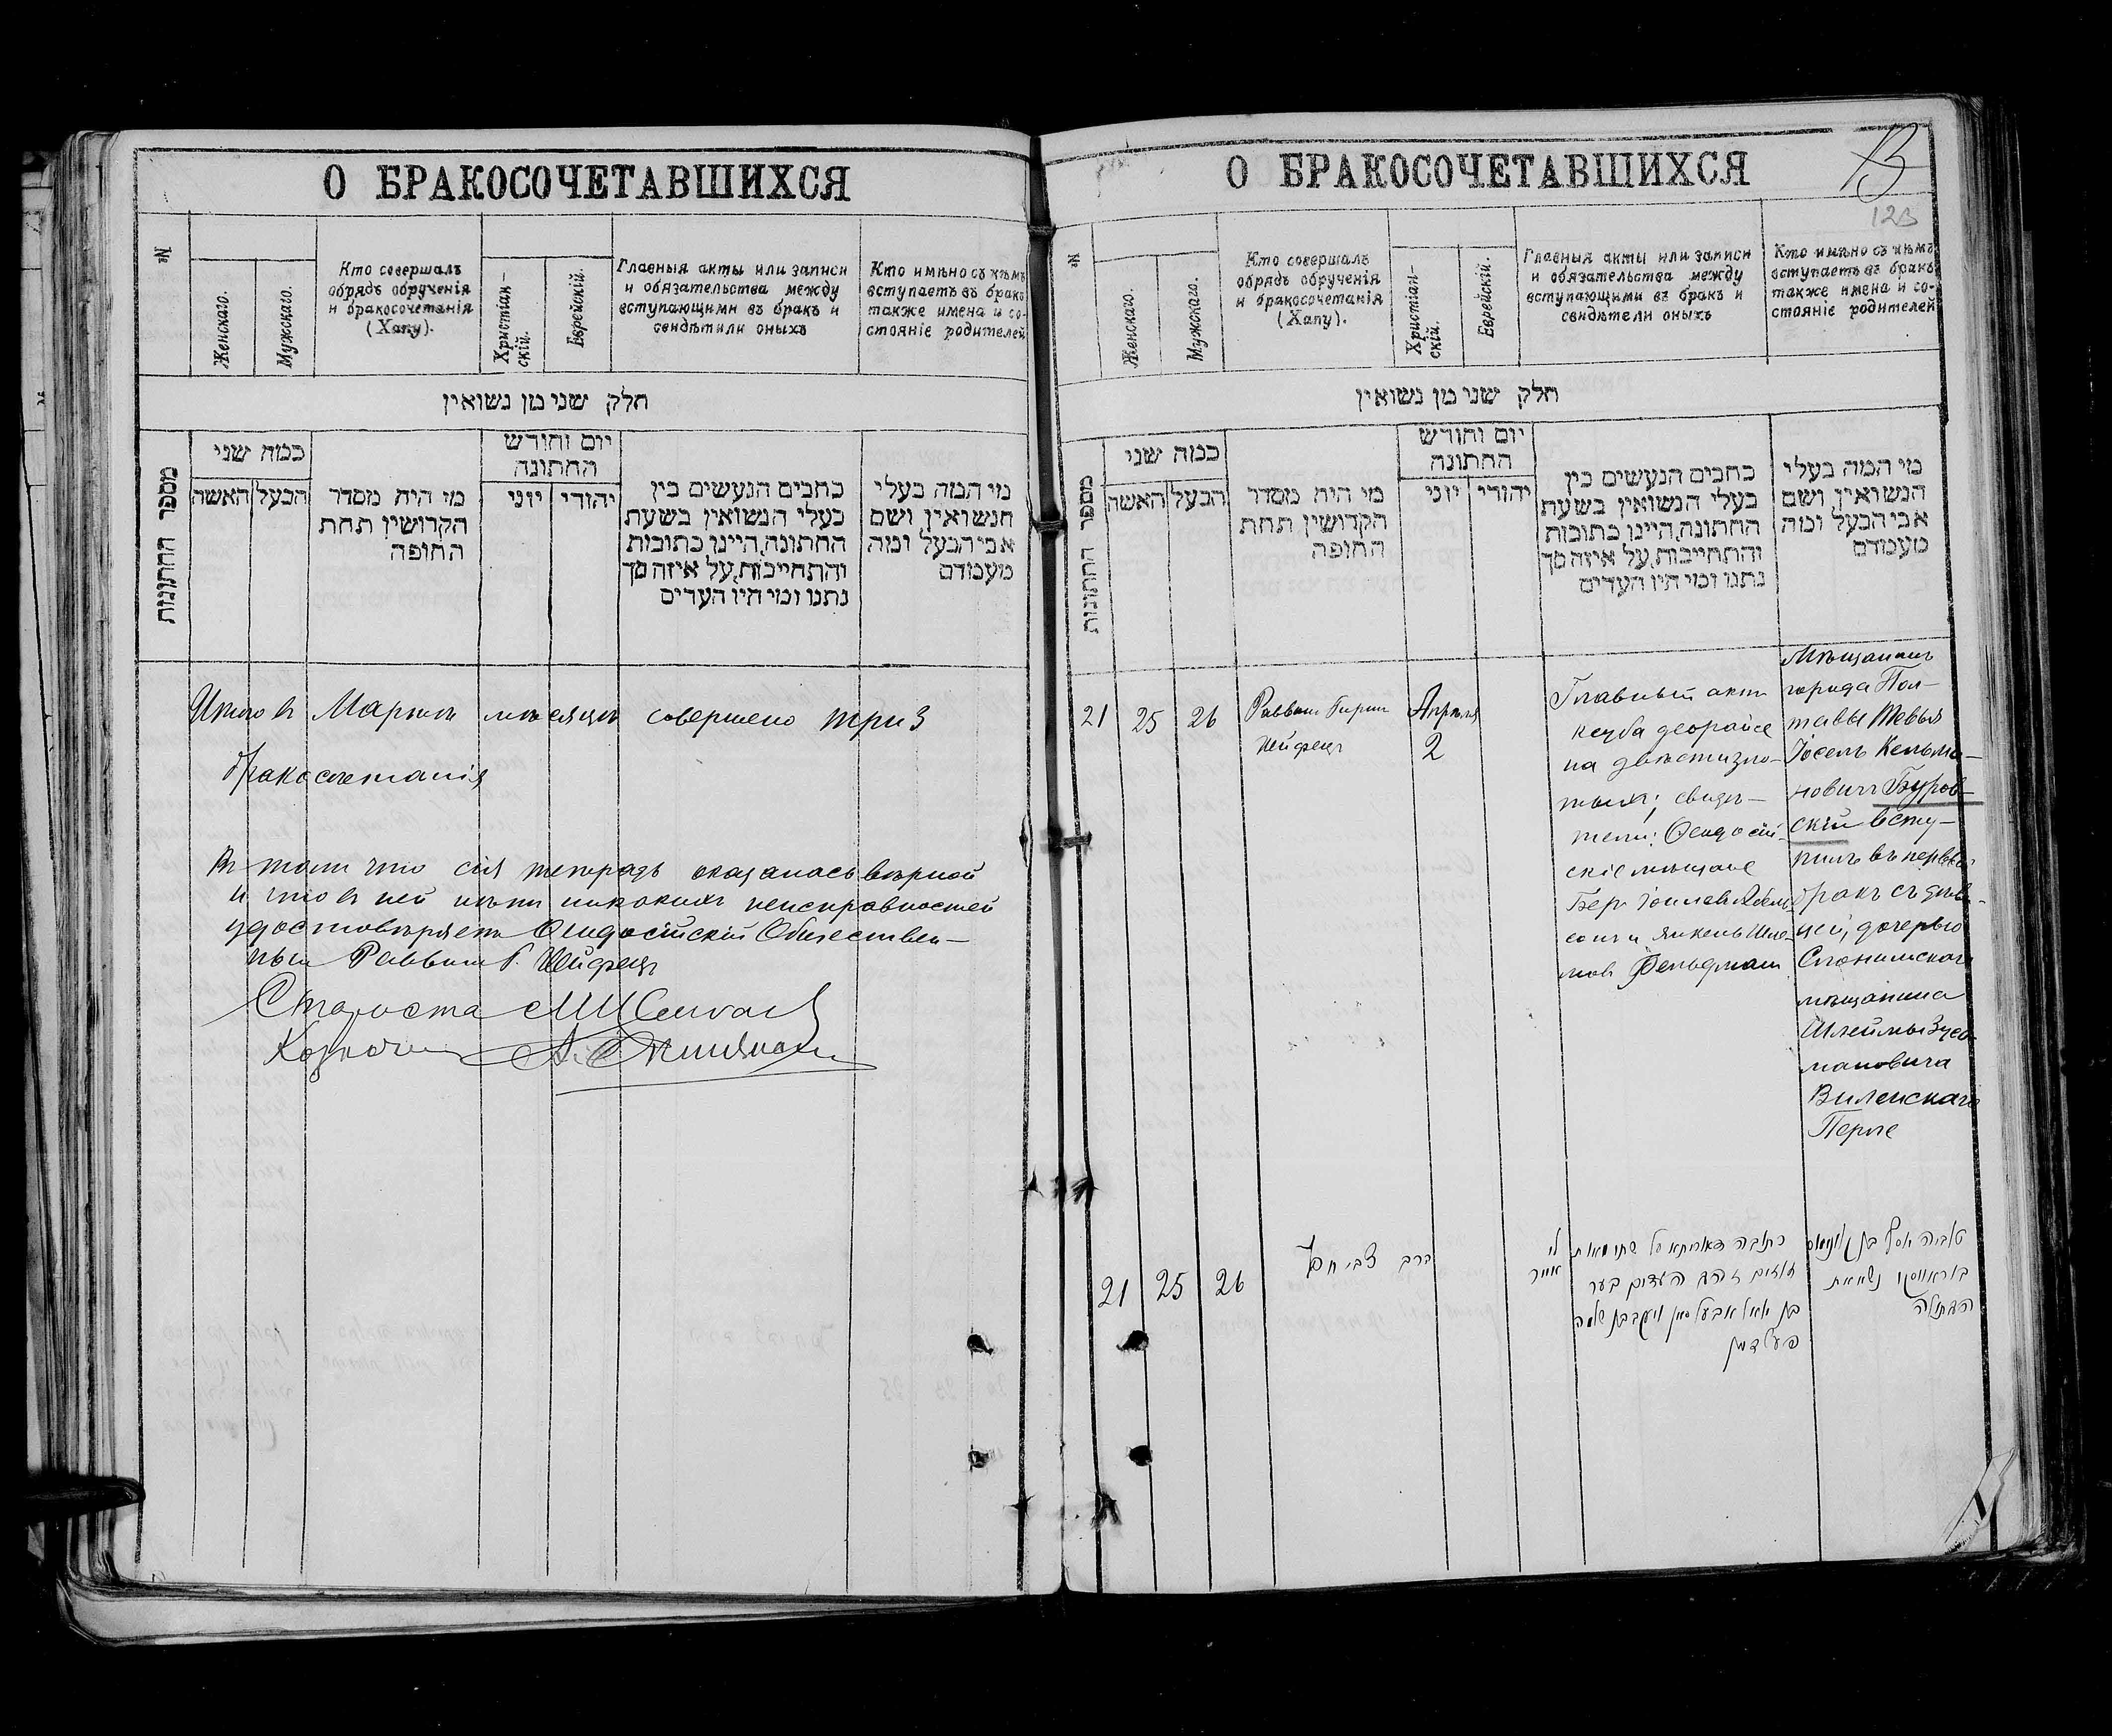 О БРАКОСОЧЕТАВШИХСЯ
№
Женскаго.
Мужскаго.
Кто совершалъ
обрядъ обрученія
и бракосочетанія
(Хапу).
Христіан-
скій.
Еврейскій.
Главныя акты или записи
и обязательства между
вступающими въ бракъ и
свидѣтили оныхъ
Кто имѣно съ кѣмъ
вступаетъ въ бракъ
также имена и со-
стояніе родителей
חלק שני מן נשואין
מספר החתונות
כמה שני
האשה
הבעל
מי היה מסדר
הקדושין תחת
החופה
יום וחודש
החתונה
יוני
יהודי
כתבים הנעשים בין
בעלי הנשואין בשעת
החתונה, היינו כתובות
והתחייבות, על איזה סך
נתנו ומי היו העדים
מי המה בעלי
הנשואין ושם
אבי הבעל ומה
מעמדם
Итого въ Мартѣ мѣсяцѣ совершено три 3
бракосочетанія
Въ томъ что сія тетрадь оказалась вѣрной
и что въ ней нѣтъ никакихъ неисправностей
удостовѣряетъ Ѳеодосійскій Обществен-
ный Раввинъ Б. Хейфецъ
Староста
Казначей
О БРАКОСОЧЕТАВШИХСЯ
13
123
№
Женскаго.
Мужскаго.
Кто совершалъ
обрядъ обрученія
и бракосочетанія
(Хапу).
Христіан-
скій.
Еврейскій.
Главныя акты или записи
и обязательства между
вступающими въ бракъ и
свидѣтели оныхъ
Кто имѣно съ кѣмъ
вступаетъ въ бракъ
также имена и со-
стояніе родителей
חלק שני מן נשואין
מספר החתונות
כמה שני
האשה
הבעל
מי היה מסדר
הקדושין תחת
החופה
יום וחודש
החתונה
יוני
יהודי
כתבים הנעשים בין
בעלי הנשואין בשעת
החתונה, היינו כתובות
והתחייבות, על איזה סך
נתנו ומי היו העדים
מי המה בעלי
הנשואין ושם
אבי הבעל ומה
מעמדם
21 25 26
Раввинъ
Хейфецъ
Апрѣля
2
Главный актъ
кесуба деорайсе
на двѣсти зло-
тыхъ; свидѣ-
тели: Ѳеодосій-
скіе мѣщане
Беръ Іоилевъ Абель-
сонъ и Янкель Шле-
мовъ Фельдманъ
Мѣщанинъ
города Пол-
тавы Тевья
Іосель Кельма-
новичъ Буров-
скій всту-
пилъ въ первый
бракъ съ дѣви-
цей, дочерью
Слонимскаго
мѣщанина
Шлеймы Зусь-
мановича
Виленскаго
Перле
21 25 26
הרב צבי חפץ
אייר
כתובה דאורייתא על שתי מאות
זהובים העדים בער
בן יואל אבעלסאן ויעקב בן שלמה
פעלדמאן
טוביה יוסף בן קלונימוס
בוראווסקי נשא את
הבתולה